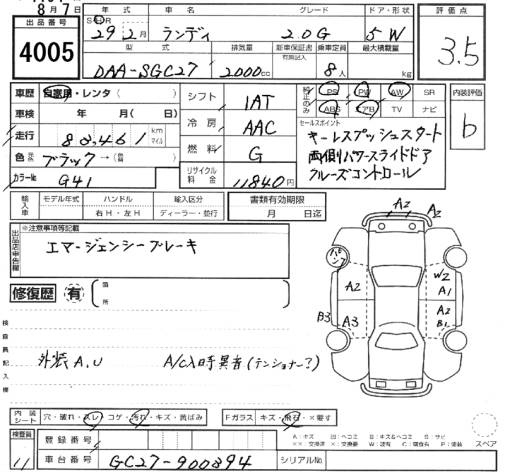 8月7日
出品番号
4005
年式 車名 グレード ドア・形状
S・H・R 29年2月 ランディ 2.0G 5W
評価点
3.5
型式 排気量 新車保証書 乗車定員 最大積載量
有無記入
DAA-SGC27 2000cc 8人 kg
車歴 自家用・レンタ( )
車検 年 月( )
走行 88,461 km マイル
色 ブラック→( )
カラーNo G41
シフト 1AT
冷房 AAC
燃料 G
リサイクル料金 11840円
PS PW AW SR
ABS エアB TV ナビ
セールスポイント
キーレスプッシュスタート
両側パワースライドドア
クルーズコントロール
内装評価
b
輸入車
モデル年式 ハンドル 輸入区分
右H・左H ディーラー・並行
書類有効期限
月 日迄
※注意事項等記載
エマージェンシーブレーキ
修復歴 有
箇所
検査員記入欄
外装A,U A/C入時異音(テンショナー?)
A2
A2
パンク
A2
W2
A1
B3
A3
A2
B1
内装シート
穴・破れ・スレ・コゲ・汚れ・キズ・黄ばみ
Fガラス キズ・飛石・×要す
検査員
11
登録番号
車台番号 GC27-900894 シリアルNo
スペア